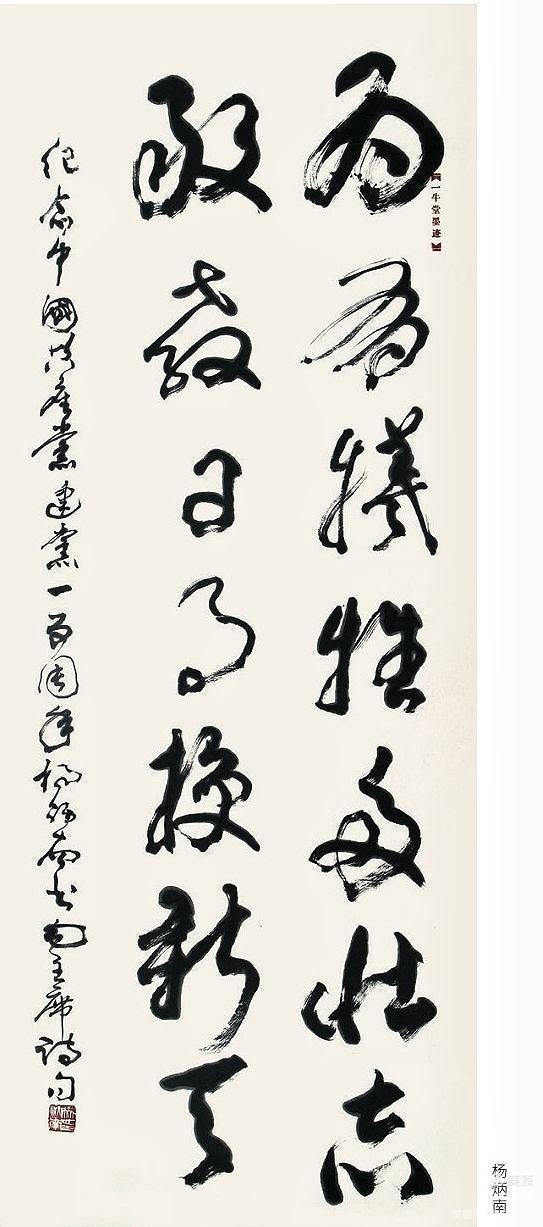 一牛堂墨迹
为有犧牲多壮志
敢教日月换新天
纪念中國共産黨建黨一百周年楊炳南书毛主席诗句
杨炳南